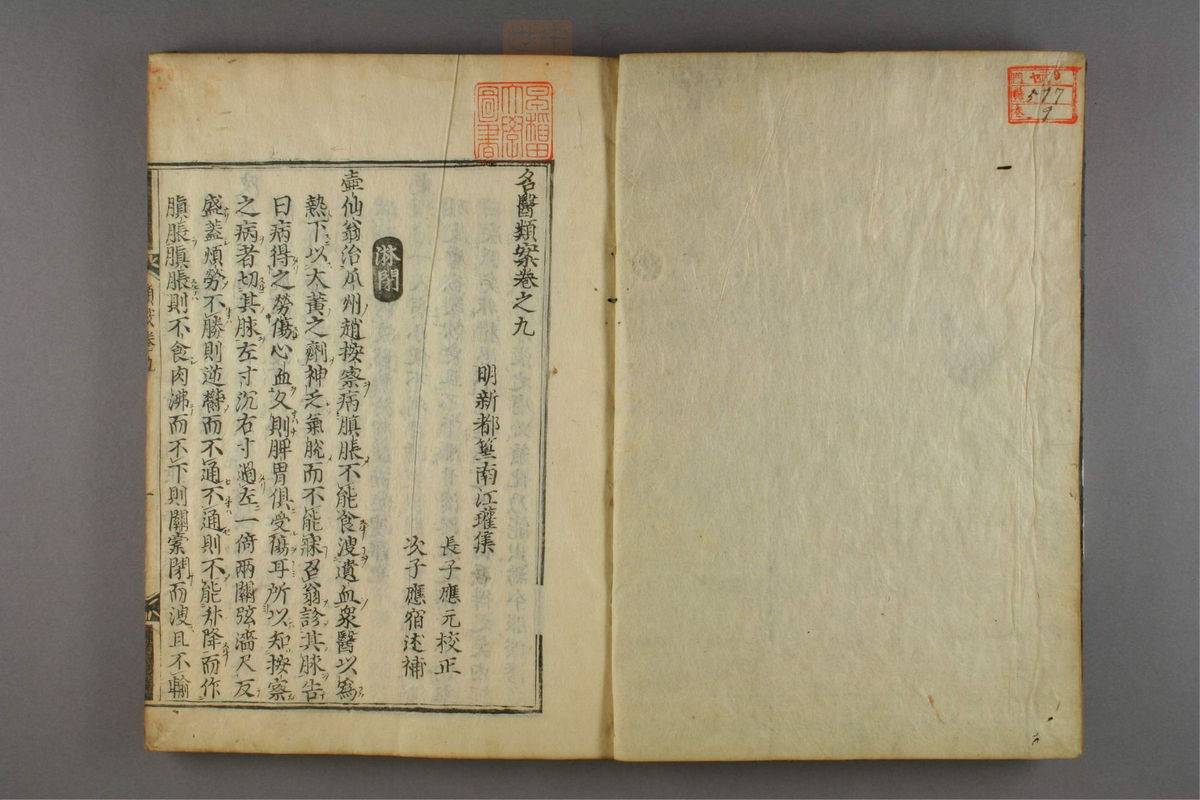 名醫類案卷之九
明新都篁南江瓘集
長子應元校正
次子應宿述補
淋閉
壺仙翁治瓜州趙按察病䐜脹不能食溲遺血衆醫以爲
熱下以大黃之劑神乏氣脫而不能寐召翁診其脉告
曰病得之勞傷心血久則脾胃俱受傷耳所以知按察
之病者切其脉左寸沉右寸過左一倍兩關弦濇尺反
盛蓋煩勞不勝則逆鬱而不通不通則不能升降而作
䐜脹䐜脹則不食肉沸而不下則關竅閉而溲且不輸
早稲田大學圖書
577
9